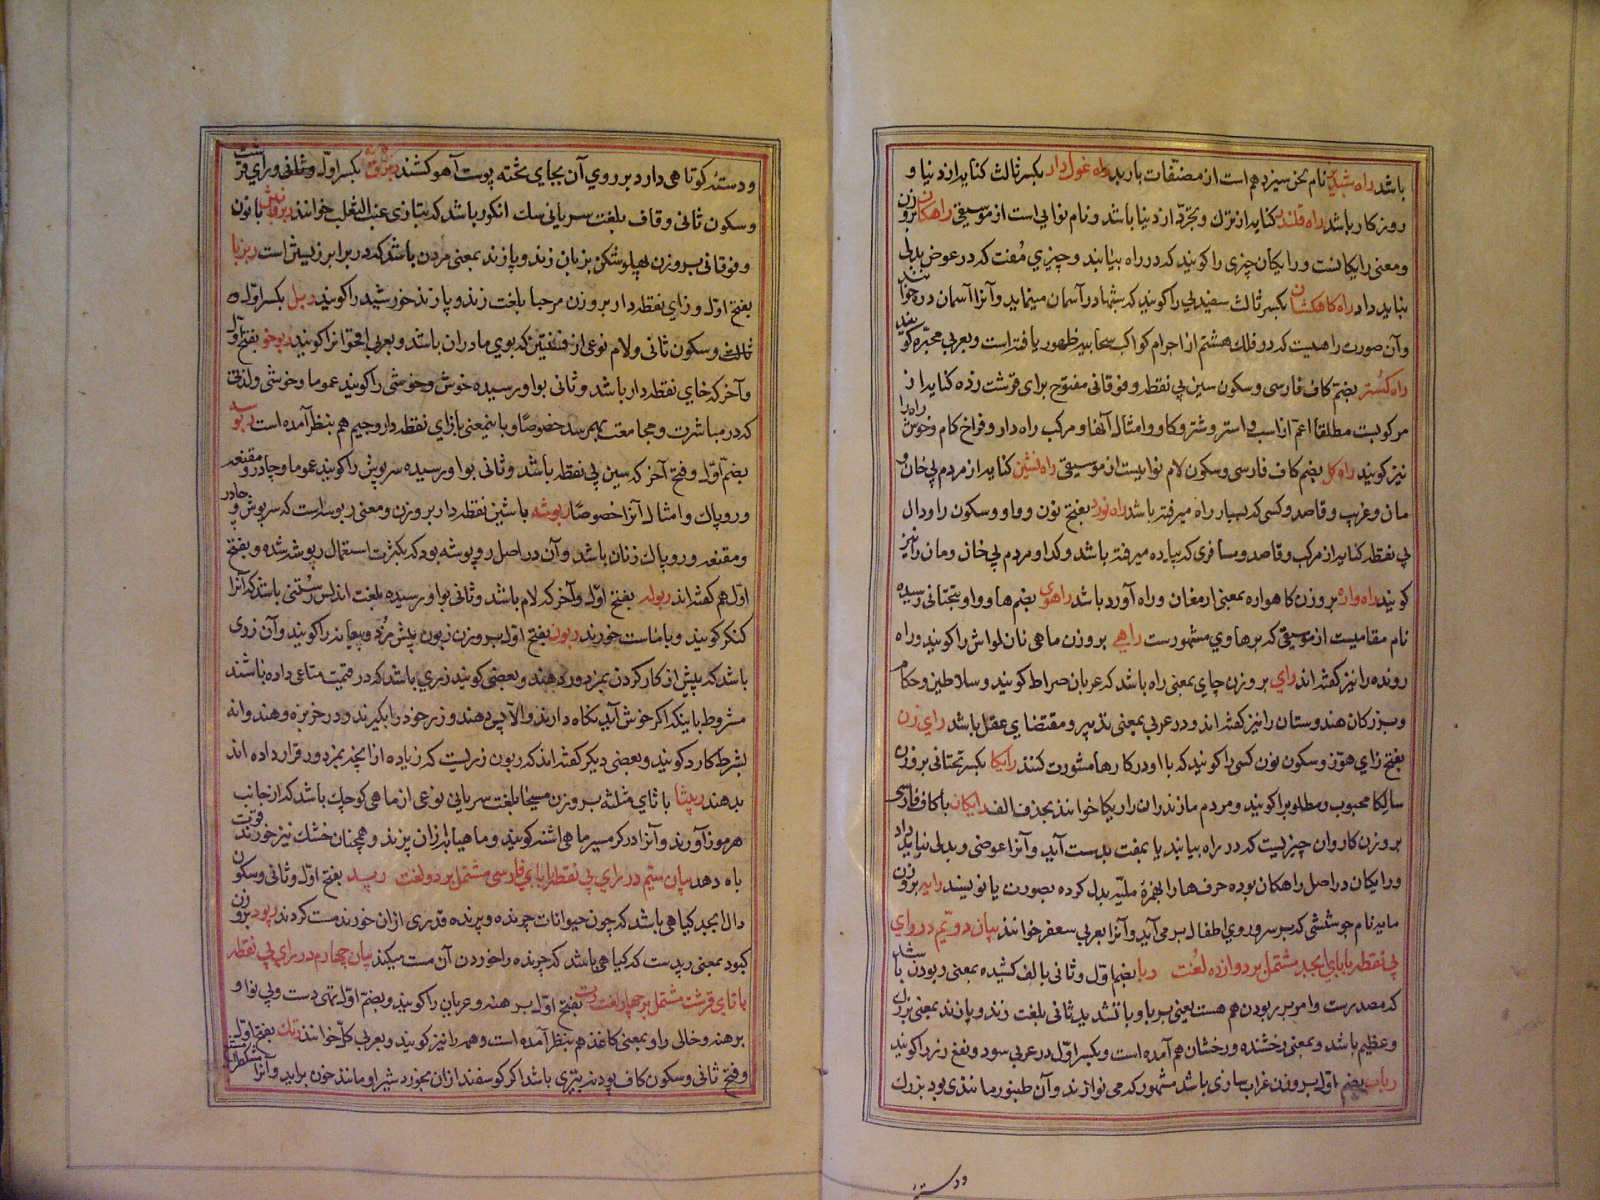 باشد راه شبدیز نام لحن سیزدهم است از مصنفات باربد راه غول دار بکسر ثالث کنایه از دنیا و
روزکار باشد راه قلندر کنایه از ترک و تجرد از دنیا باشد و نام نوایی است از موسیقی راهکان بر وزن
و معنی رایکانست و رایکان چیزی را کویند که در راه بیابند و چیزی مفت که در عوض بدلی
نباید داد راه کاهکشان بکسر ثالث سفیدیی را کویند که شبها در آسمان مینماید و آنرا آسمان دره خوانند
و آن صورت راهیست که در فلک هشتم از اجرام کواکب سحابیه ظهور یافته است و بعربی مجره کویند
راه کستر بضم کاف فارسی و سکون سین بی نقطه و فوقانی مفتوح برای قرشت زده کنایه از
مرکوبست مطلقا اعم از اسب و استر و شتر و کاو و امثال آنها و مرکب راه دار و فراخ کام و خوش راه را
نیز کویند راه کل بضم کاف فارسی و سکون لام نواییست از موسیقی راه نشین کنایه از مردم بی خان و
مان و غریب و قاصد و کسی که بسیار راه میرفته باشد راه نورد بفتح نون و واو و سکون را و دال
بی نقطه کنایه از مرکب و قاصد و مسافری که پیاده میرفته باشد و کدا و مردم بی خان و مان را نیز
کویند راه واره بر وزن کاهواره بمعنی ارمغان و راه آورد باشد راهوی بضم ها و واو بتحتانی رسیده
نام مقامیست از موسیقی که برهاوی مشهورست راهی بر وزن ماهی نان لواش را کویند و راه
رونده را نیز کفته اند رای بر وزن جای بمعنی راه باشد که عربان صراط کویند و سلاطین و حکام
و بزرکان هندوستان را نیز کفته اند و در عربی بمعنی تدبیر و مقتضای عقل باشد رای زن
بفتح زای هوز و سکون نون کسی را کویند که با او در کارها مشورت کنند رایکا بکسر تحتانی بر وزن
سالکا محبوب و مطلوب را کویند و مردم مازندران را ریکا خوانند بحذف الف رایکان با کاف فارسی
بر وزن کاروان چیزیست که در راه بیابند یا بمفت بدست آید و آنرا عوضی و بدلی نباید داد
و رایکان در اصل راهکان بوده حرف ها را بهمزه ملینه بدل کرده بصورت یا نویسند رایبر بر وزن
ما یه نام جوششی که بر سر و روی اطفال بر می آید و آنرا بعربی سعفه خوانند بیان دویم در رای
بی نقطه با بای ابجد مشتمل بر دوازده لغت ربا بضم اول و ثانی بالف کشیده بمعنی ربودن باشد
که مصدرست و امر بر ربودن هم هست یعنی بربا و با تشدید ثانی بلغت زند و پازند بمعنی بزرک
و عظیم باشد و بمعنی رخشنده و رخشان هم آمده است و بکسر اول در عربی سود و نفع زر را کویند
رباب بضم اول بر وزن غراب سازی باشد مشهور که می نوازند و آن طنبور مانندی بود بزرک
و دسته
و دسته کوتاهی دارد بر روی آن بجای تخته پوست آهو کشند ربرق بکسر اول و ثانی و رای قرشت
و سکون ثانی و قاف بلغت سریانی سک انکور باشد که بتازی عنب الثعلب خوانند با نون
و فوقانی بر وزن پهلو شکن بزبان زند و پازند بمعنی مردن باشد که در برابر زیستن است ربزبا
بفتح اول و زای نقطه دار بر وزن مرحبا بلغت زند و پازند خورشید را کویند ربل بکسر اول و
ثالث و سکون ثانی و لام نوعی از که بوی مادران باشد و بعربی اقحوانرا کویند ربوخه بفتح اول
و آخر که خای نقطه دار باشد و ثانی بواو رسیده خوش و خوشی را کویند عموما و خوشی و لذتی
که در مباشرت و مجامعت بهم رسد خصوصا و باینمعنی با زای نقطه دار و جیم هم بنظر آمده است ربوسه
بضم اول و فتح آخر که سین بی نقطه باشد و ثانی بواو رسیده سرپوش را کویند عموما و چادر و مقنعه
و روپاک و امثال آنرا خصوصا ربوشه با شین نقطه دار بر وزن و معنی ربوسه است که سرپوش و چادر
و مقنعه و روپاک زنان باشد و آن در اصل روپوشه بود که بکثرت استعمال رپوشه شده و بفتح
اول هم کفته اند ربوله بفتح اول و آخر که لام باشد و ثانی بواو رسیده بلغت اندلس رستنی باشد که آنرا
کنکر کویند و با ماست خورند ربون بفتح اول بر وزن زبون پیش مزد و بیعانه را کویند و آن زری
باشد که پیش از کار کردن بمزدور دهند و بعضی کویند زری باشد که در قیمت متاعی داده باشند
مشروط باینکه اکر خوش آید نکاه دارند والا پس دهند و زر خود را بکیرند و در خربزه و هندوانه
بشرط کارد کویند و بعضی دیکر کفته اند که ربون زریست که زیاده از آنچه بمزدور قرار داده اند
بدهند ربیثا با ثای مثلثه بر وزن مسیحا بلغت سریانی نوعی از ماهی کوچک باشد که از جانب
هرموز آورند و آنرا در کرمسیر ماهی اشنه کویند و ما هیابه ازان پزند و همچنان خشک نیز خورند قوت
باه دهد بیان سیم در رای بی نقطه با بای فارسی مشتمل بر دو لغت رپد بفتح اول و ثانی و سکون
دال ابجد کیاهی باشد که چون حیوانات چرنده و پرنده قدری ازان خورند مست کردند رپود بر وزن
کبود بمعنی رپدست که کیاهی باشد که چرنده را خوردن آن مست میکند بیان چهارم در رای بی نقطه
با تای قرشت مشتمل بر چهار لغت رت بفتح اول برهنه و عریان را کویند و بضم اول تهی دست و بی نوا و
برهنه و خالی را و بمعنی کاغذ هم بنظر آمده است و همه را نیز کویند و بعربی کل خوانند رتک بفتح اول
و فتح ثانی و سکون کاف پودنه بریزی باشد اکر کوسفند ازان بخورد شیر او مانند خون براید و آنرا